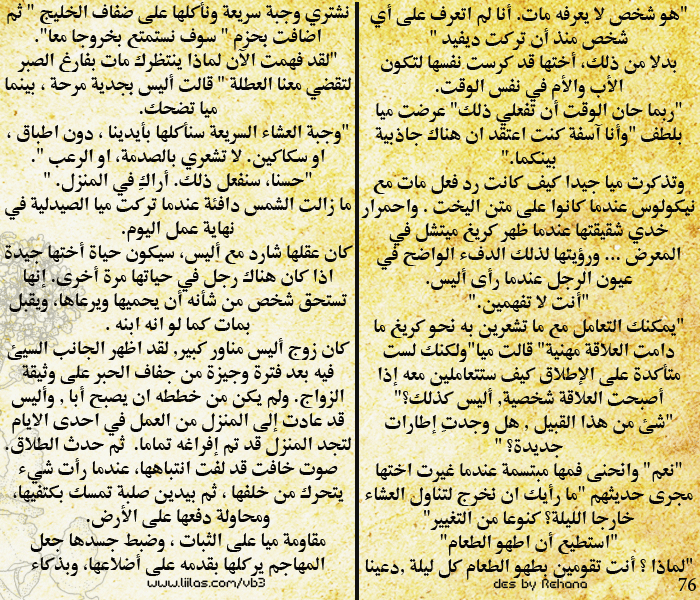 "هو شخص لا يعرفه مات. أنا لم اتعرف على أي
شخص منذ أن تركت ديفيد "
بدلا من ذلك، أختها قد كرست نفسها لتكون
الأب والأم في نفس الوقت.
"ربما حان الوقت أن تفعلي ذلك" عرضت ميا
بلطف "وأنا آسفة كنت اعتقد ان هناك جاذبية
بينكما."
وتذكرت ميا جيدا كيف كانت رد فعل مات مع
نيكولوس عندما كانوا على متن اليخت . واحمرار
خدي شقيقتها عندما ظهر كريغ ميتشل في
المعرض ... ورؤيتها لذلك الدفء الواضح في
عيون الرجل عندما رأى أليس.
"أنت لا تفهمين."
"يمكنك التعامل مع ما تشعرين به نحو كريغ ما
دامت العلاقة مهنية" قالت ميا"ولكنك لست
متأكدة على الإطلاق كيف ستتعاملين معه إذا
أصبحت العلاقة شخصية, أليس كذلك؟"
"شئ من هذا القبيل , هل وجدتِ إطارات
جديدة؟ "
"نعم" وانحنى فمها مبتسمة عندما غيرت اختها
مجرى حديثهم "ما رأيك ان نخرج لتناول العشاء
خارجا الليلة؟ كنوعا من التغيير"
"استطيع أن اطهو الطعام"
"لماذا ؟ أنت تقومين بطهو الطعام كل ليلة ,دعينا
76
des by Rehana
نشتري وجبة سريعة ونأكلها على ضفاف الخليج " ثم
اضافت بحزم " سوف نستمتع بخروجا معا".
"لقد فهمت الآن لماذا ينتظرك مات بفارغ الصبر
لتقضي معنا العطلة " قالت أليس بجدية مرحة ، بينما
ميا تضحك.
"وجبة العشاء السريعة سنأكلها بأيدينا ، دون اطباق ,
او سكاكين. لا تشعري بالصدمة، او الرعب ".
"حسنا، سنفعل ذلك. أراكِ في المنزل. "
ما زالت الشمس دافئة عندما تركت ميا الصيدلية في
نهاية عمل اليوم.
كان عقلها شارد مع أليس، سيكون حياة أختها جيدة
اذا كان هناك رجل في حياتها مرة أخرى. إنها
تستحق شخص من شأنه أن يحميها ويرعاها، ويقبل
بمات كما لو انه ابنه .
كان زوج أليس مناور كبير, لقد اظهر الجانب السيئ
فيه بعد فترة وجيزة من جفاف الحبر على وثيقة
الزواج. ولم يكن من خططه ان يصبح أبا , وأليس
قد عادت إلى المنزل من العمل في احدى الايام
لتجد المنزل قد تم إفراغه تماما. ثم حدث الطلاق.
صوت خافت قد لفت انتباهها، عندما رأت شيء
يتحرك من خلفها ، ثم بيدين صلبة تمسك بكتفيها،
ومحاولة دفعها على الأرض.
مقاومة ميا على الثبات ، وضبط جسدها جعل
المهاجم يركلها بقدمه على أضلاعها، وبذكاء
www.liilas.com/vb3